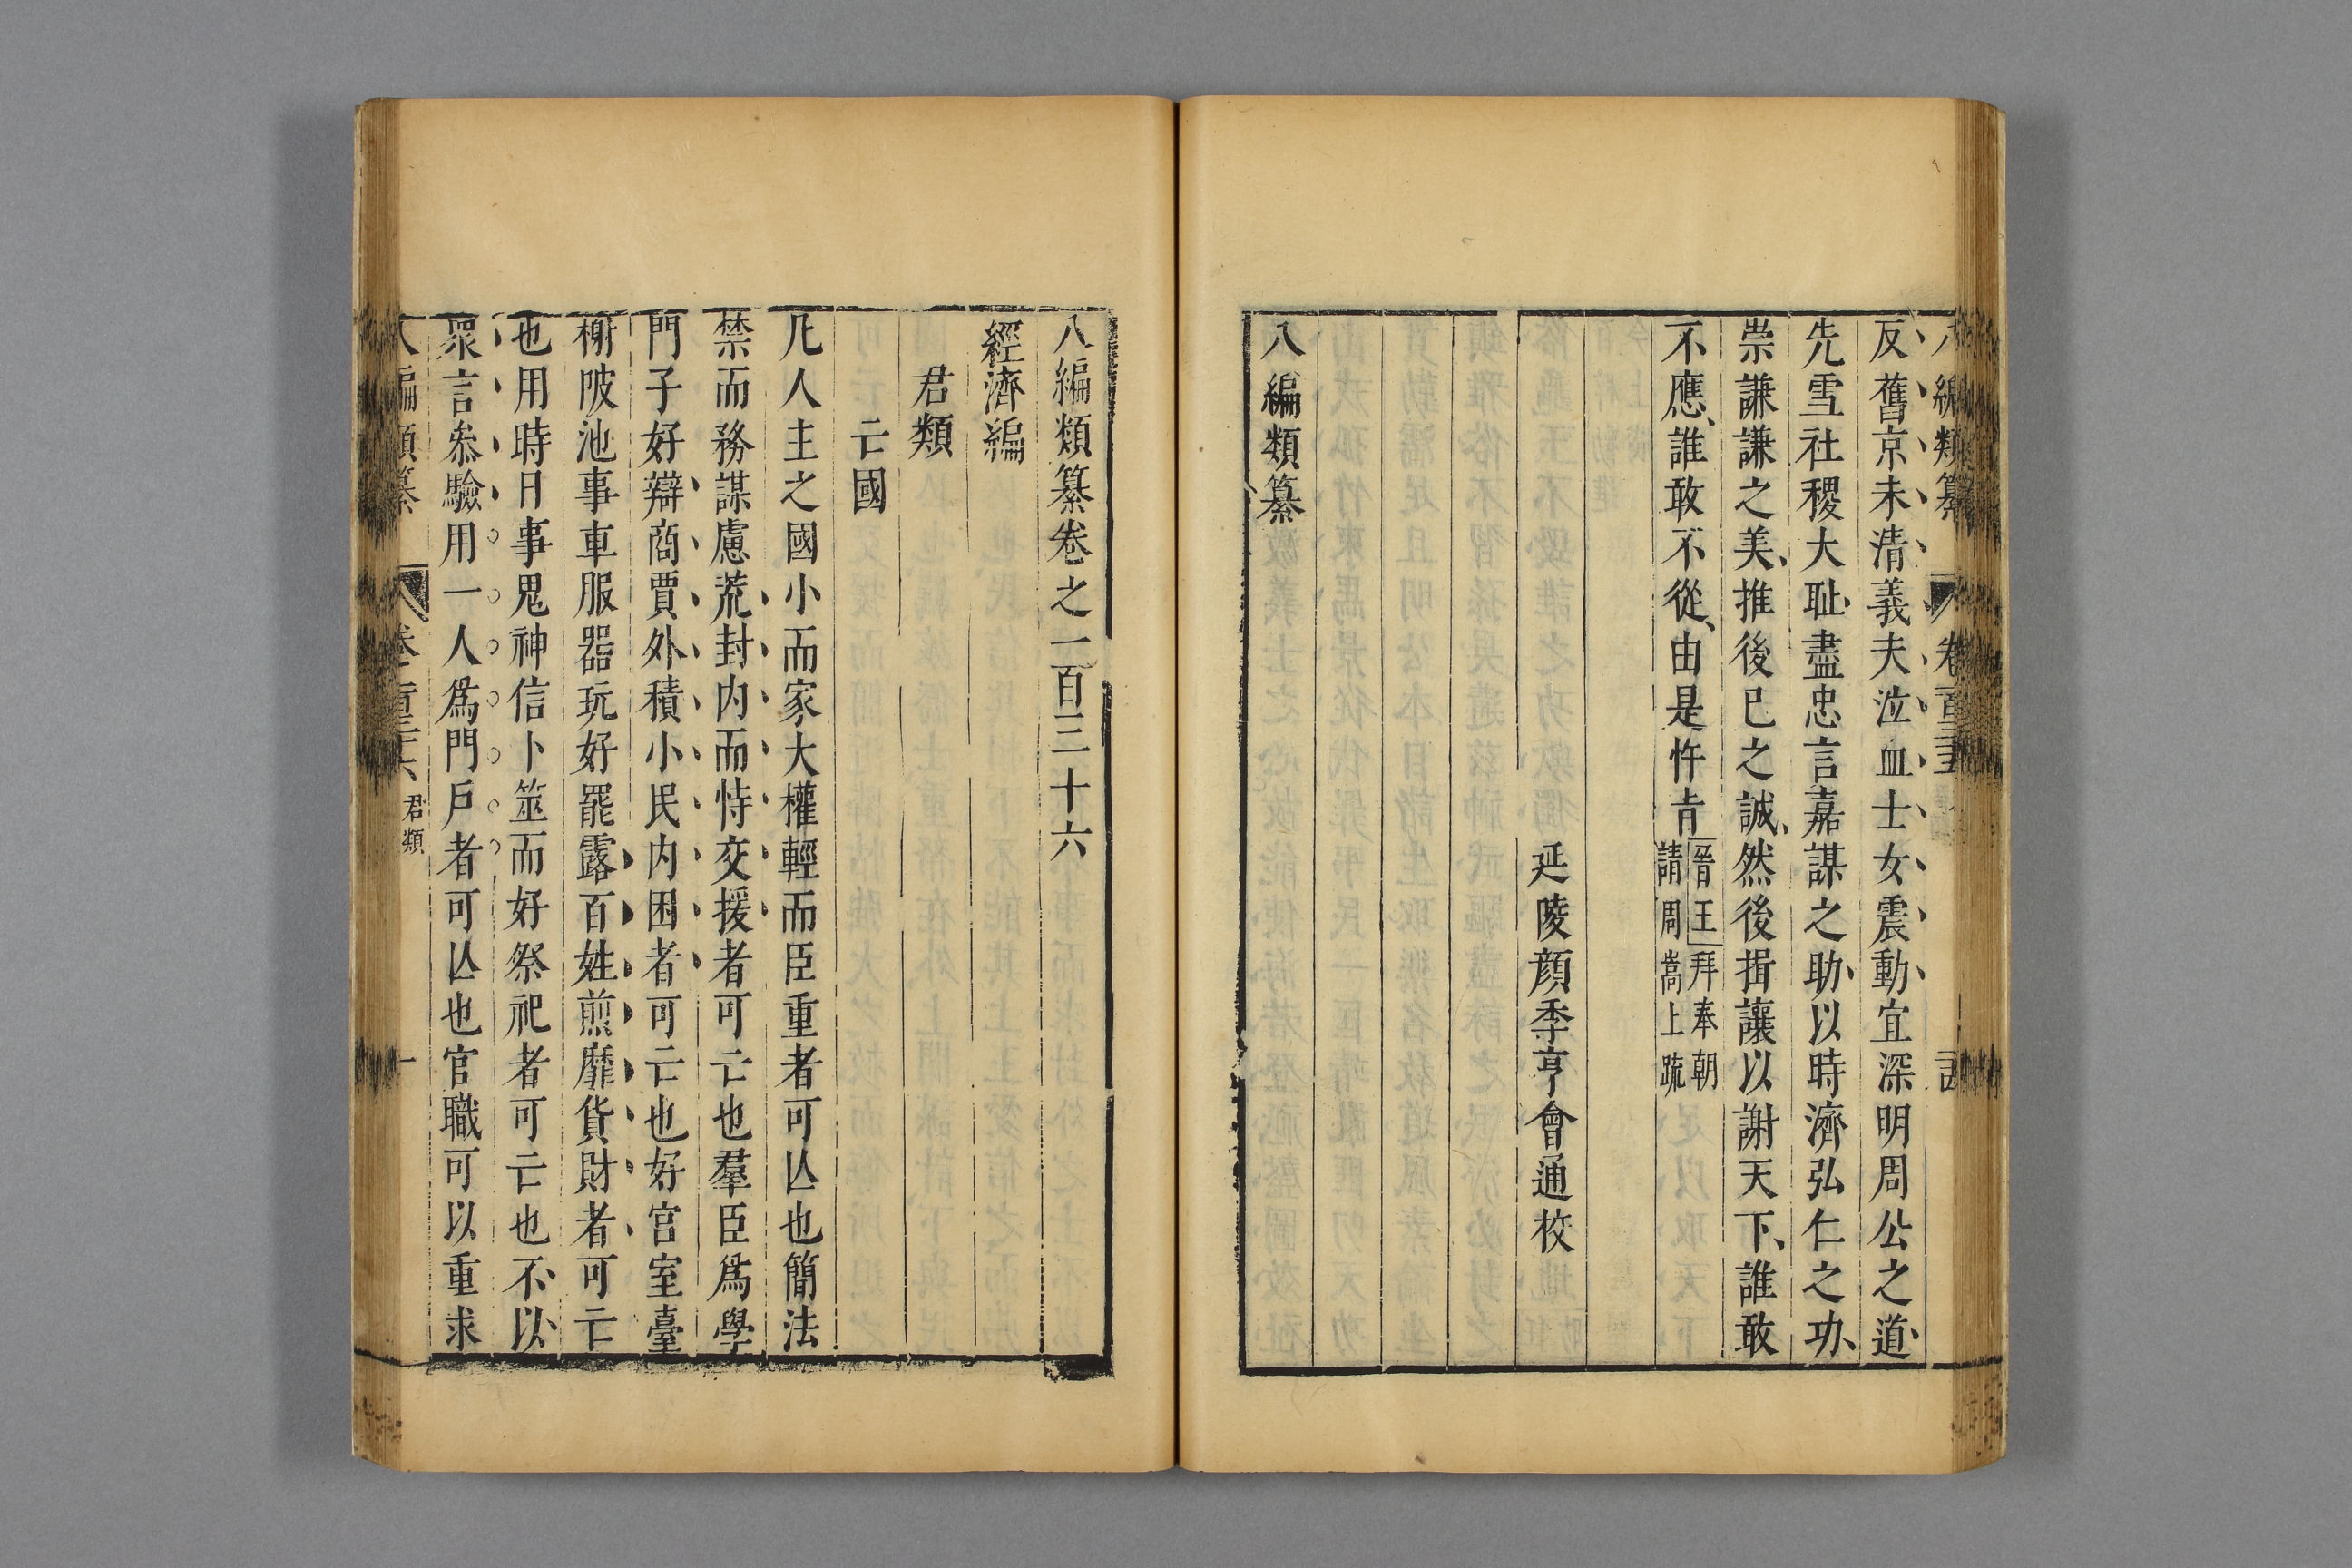 八編類纂 卷一百三十五
反舊京未清義夫泣血士女震動宜深明周公之道
先雪社稷大耻盡忠言嘉謀之助以時濟弘仁之功
崇謙謙之美推後巳之誠然後揖讓以謝天下誰敢
不應誰敢不從由是忤旨晉王拜奉朝
請周嵩上疏
延陵顔季亨會通校
八編類纂
八編類纂卷之一百三十六
經濟編
君類
亡國
凡人主之國小而家大權輕而臣重者可亾也簡法
禁而務謀慮荒封内而恃交援者可亡也羣臣爲學
門子好辯商賈外積小民内困者可亡也好宫室臺
榭陂池事車服器玩好罷露百姓煎靡貨財者可亡
也用時日事鬼神信卜筮而好祭祀者可亡也不以
衆言叅驗用一人爲門戶者可亾也官職可以重求
八編類纂 卷一百三十六 君類 一